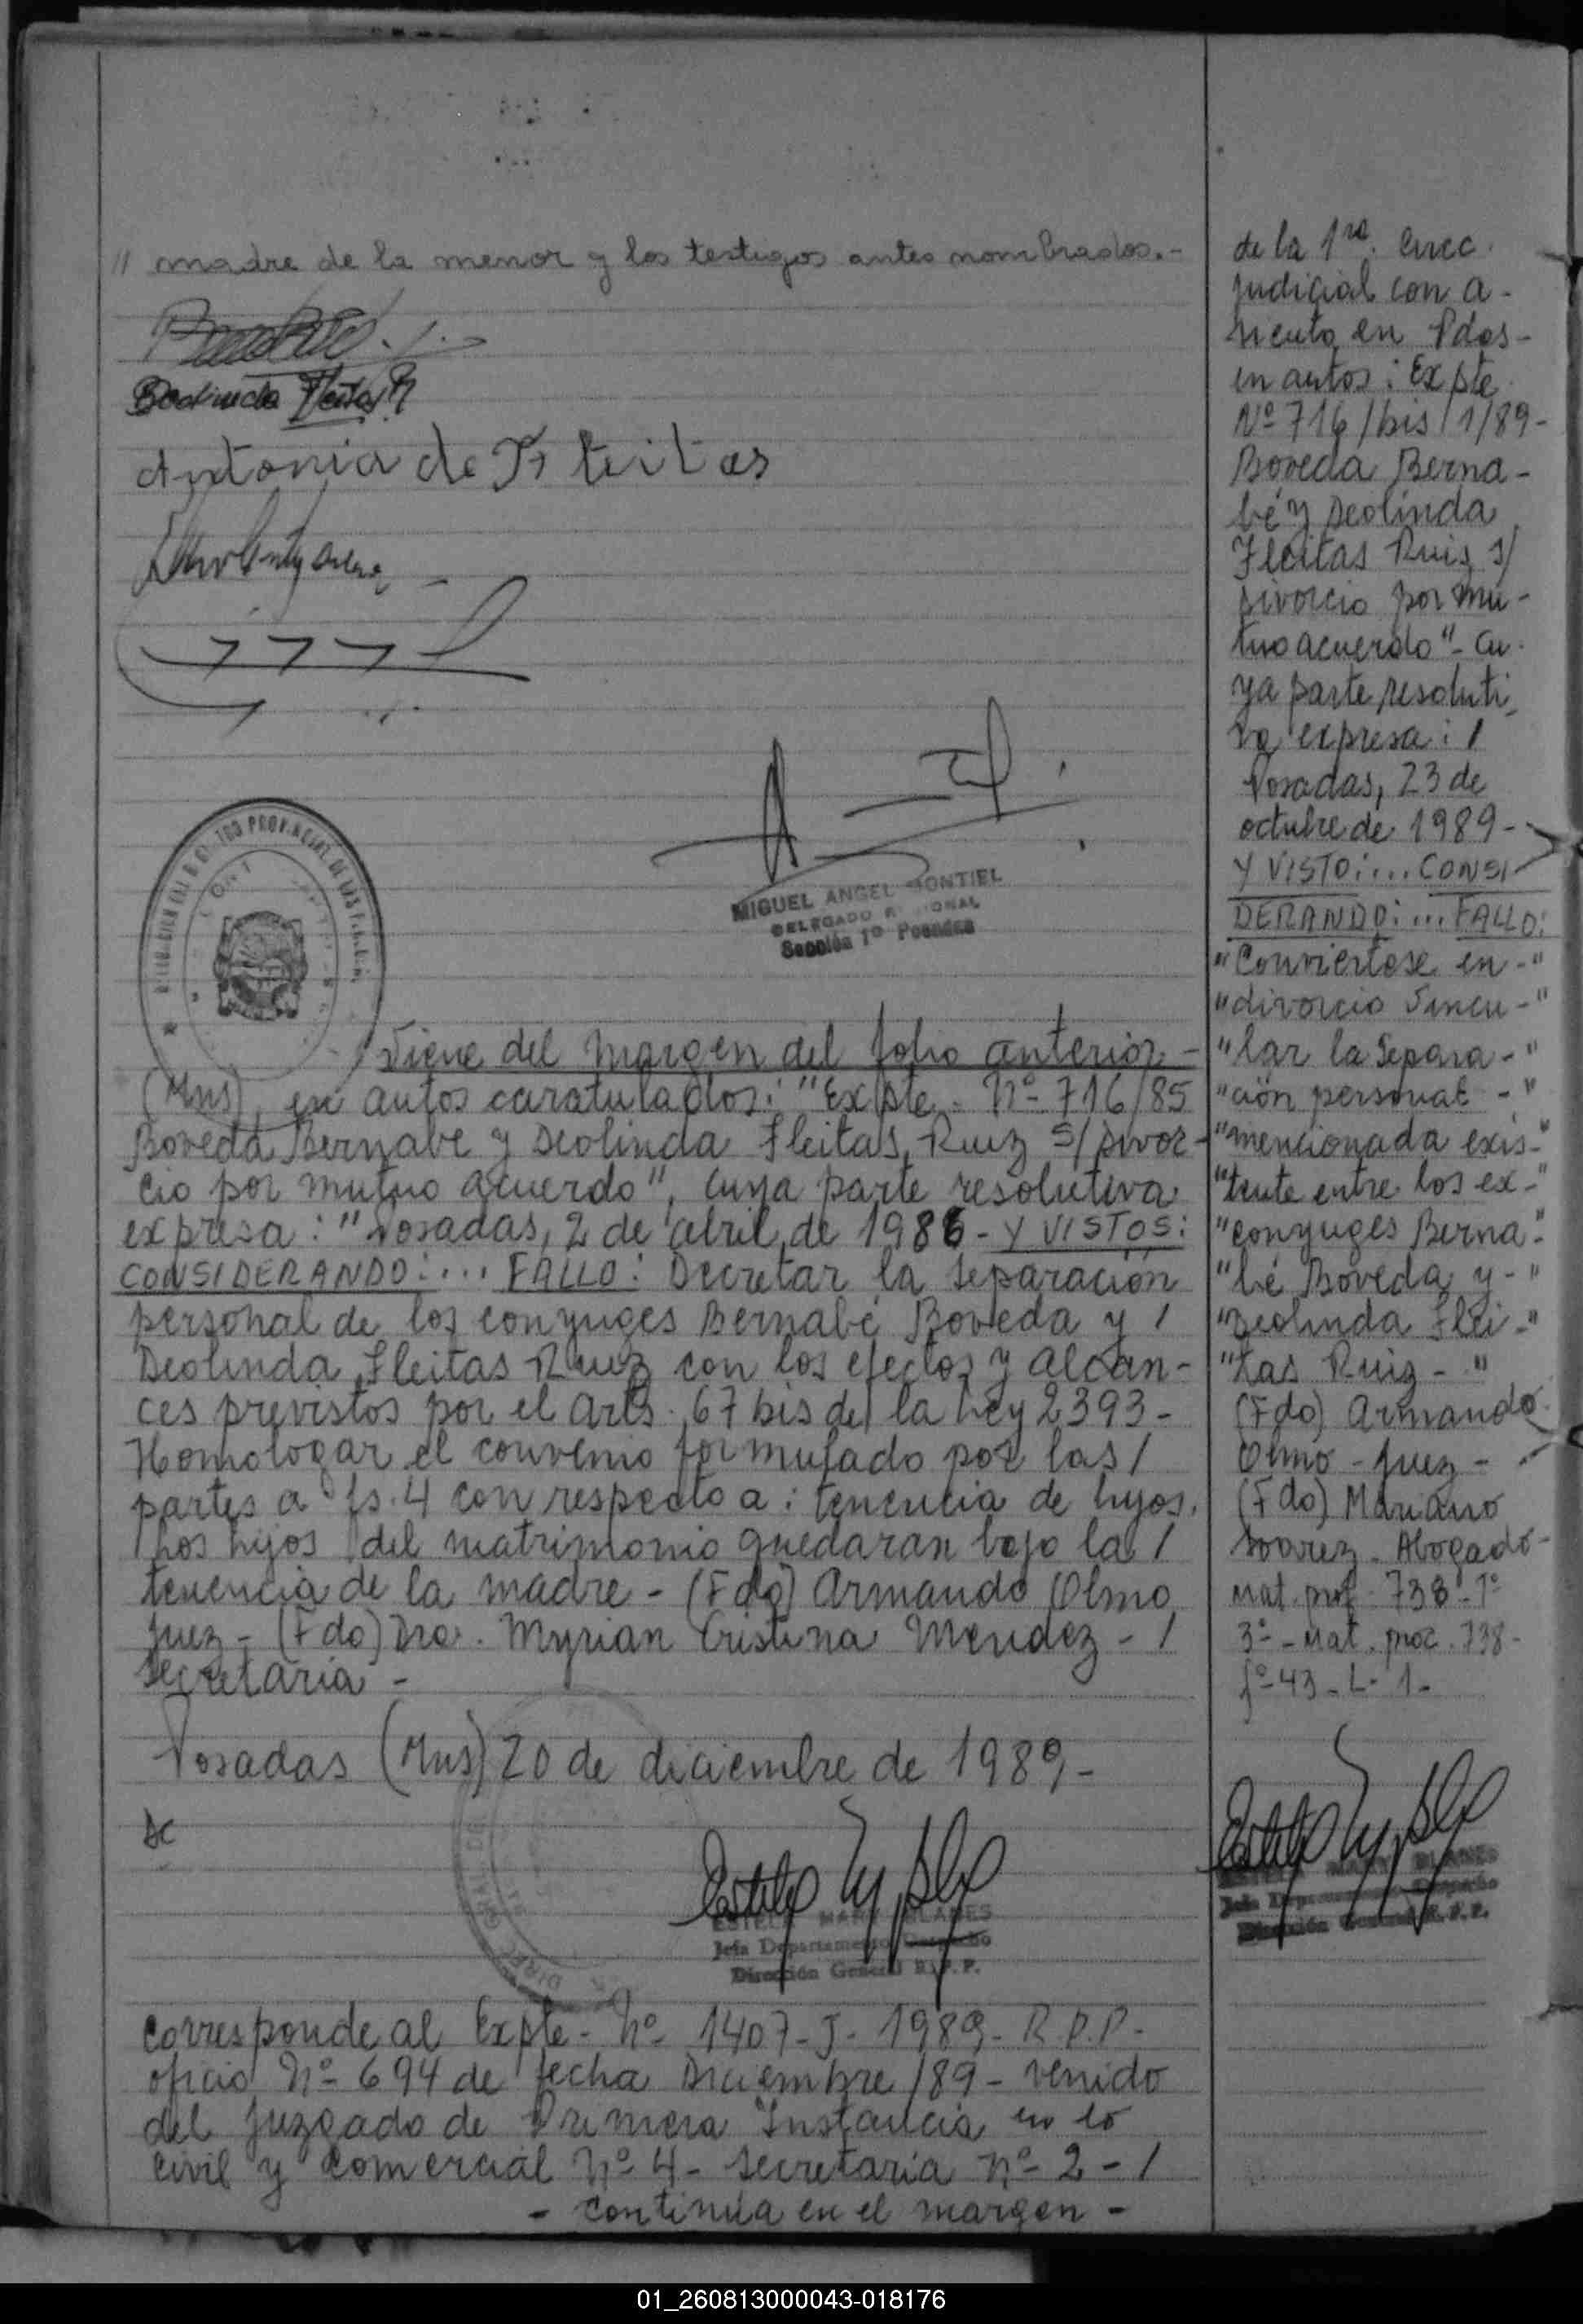 // madre de la menor y los testigos antes nombrados.-
Antonia de Fleitas
MIGUEL ANGEL MONTIEL
DELEGADO REGIONAL
Sección 1º Posadas
Viene del margen del folio anterior -
(Mns), en autos caratulados: "Expte. Nº 716/85
Boveda Bernabe y Deolinda Fleitas Ruiz S/ Divor-
cio por mutuo acuerdo", cuya parte resolutiva
expresa: "Posadas, 2 de abril de 1986 - Y VISTOS:
CONSIDERANDO:... FALLO: Decretar la separación
personal de los conyuges Bernabé Boveda y /
Deolinda Fleitas Ruiz con los efectos y alcan-
ces previstos por el arts. 67 bis de la Ley 2393 -
Homologar el convenio formulado por las /
partes a fs. 4 con respecto a: tenencia de hijos.
Los hijos del matrimonio quedaran bajo la /
tenencia de la madre - (Fdo) Armando Olmo
Juez - (Fdo) Dra. Myrian Cristina Mendez - /
Secretaria -
Posadas (Mns) 20 de diciembre de 1989 -
ESTELA MARY BLANES
Jefa Departamento Despacho
Dirección General R.P.P.
Corresponde al Expte - Nº 1407-J-1989- R.P.P-
oficio Nº 694 de fecha Diciembre/89 - venido
del Juzgado de Primera Instancia en lo
Civil y Comercial Nº 4 - Secretaria Nº 2 - /
- continúa en el margen -
de la 1ra. Circc.
Judicial con a-
siento en Pdas -
en autos: Expte
Nº 716/bis/1/89-
Boveda Berna-
bé y Deolinda
Fleitas Ruiz s/
Divorcio por mu-
tuo acuerdo" - cu-
ya parte resoluti-
va expresa: /
Posadas, 23 de
octubre de 1989 -
Y VISTO:... CONSI
DERANDO:... FALLO:
"Conviertase en -"
"divorcio Vincu-"
"lar la Separa-"
"ción personal -"
"mencionada exis-"
"tente entre los ex-"
"conyuges Berna-"
"bé Boveda y -"
"Deolinda Flei-"
"tas Ruiz - "
(Fdo) Armando
Olmo - Juez -
(Fdo) Mariano
Suarez - Abogado -
Mat. prof. 738 - Tº
3º - Mat. proc. 738 -
fº 43 - L - 1 -
ESTELA MARY BLANES
Jefa Departamento Despacho
Dirección General R.P.P.
01_260813000043-018176